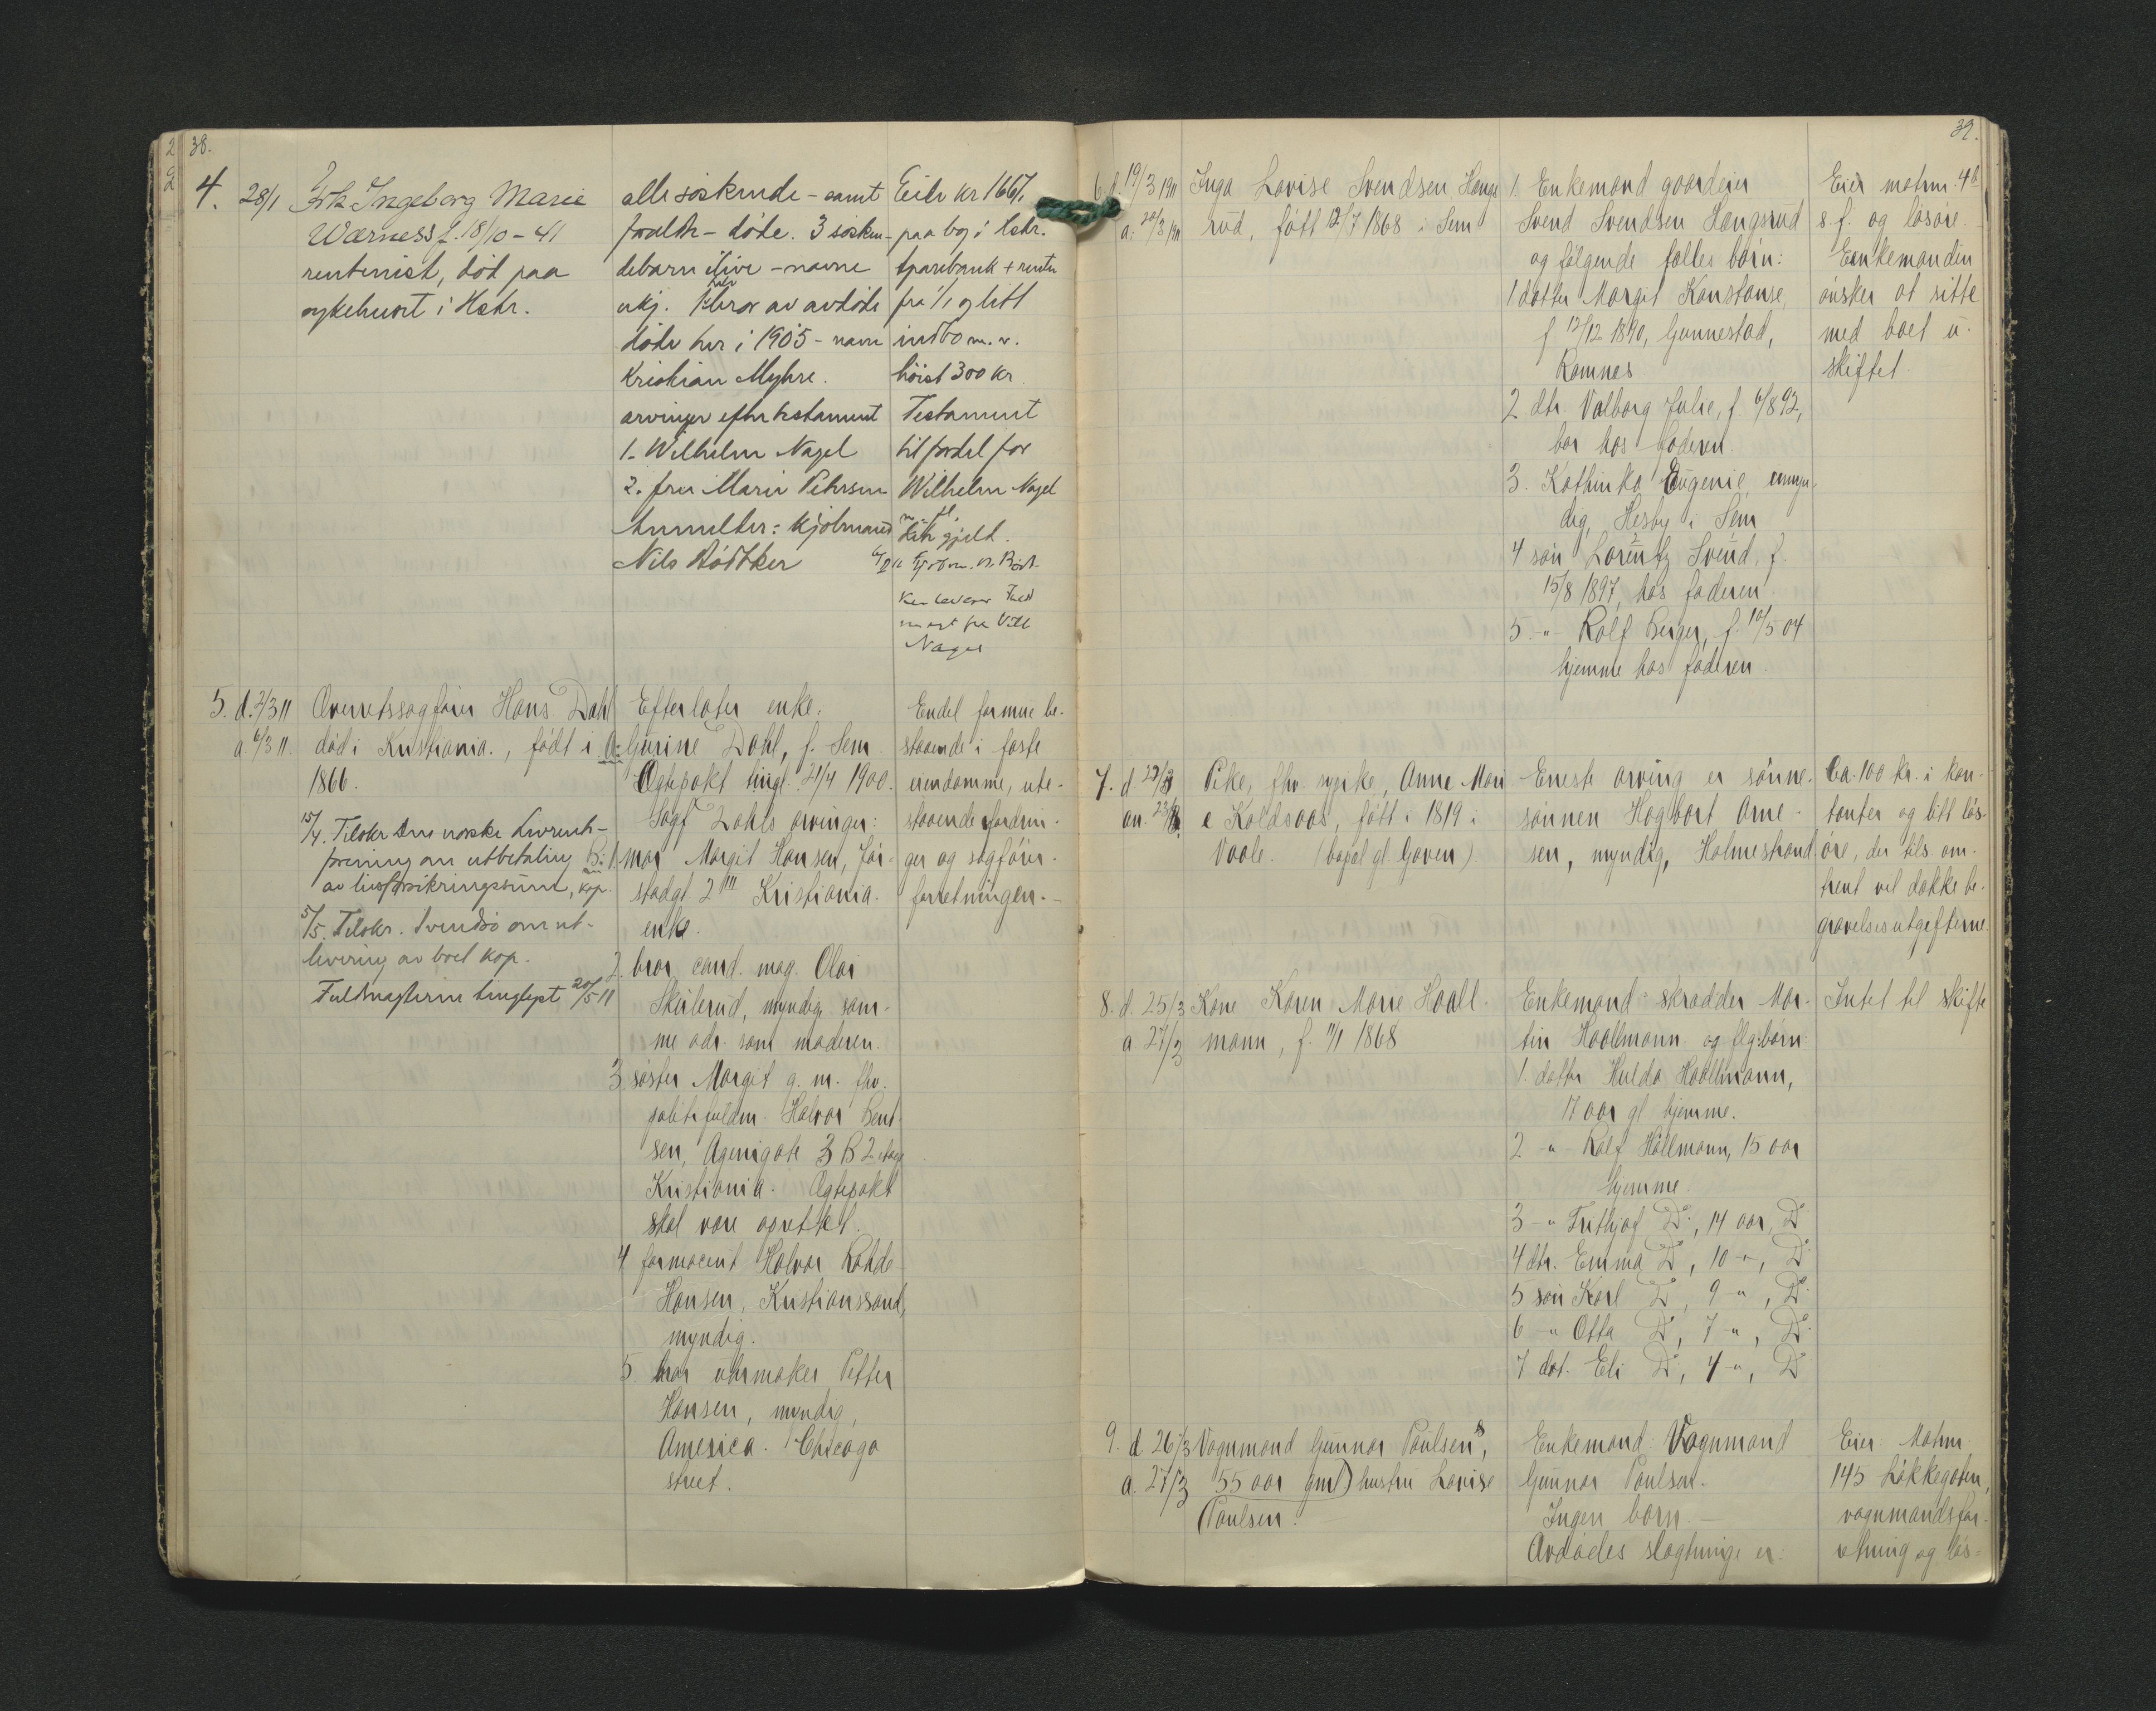 38.
4.
28/1
Frk Ingeborg Marie
Wærness f. 18/10 - 41
rentenist, död paa
sykehuset i Hstr.
alle söskende - samt
foreldr - döde. 3 sösken-
debarn ilive - navne
ukj. Halvbror av avdöde
döde her i 1905 - navn
Kristian Myhre.
arvinger efter testament
1. Wilhelm Nagel
2. fru Marie Petersen
Anmelder: kjöbmand
Nils Bödtker
Eier kr 1667,
paa bog i Hstr.
Sparebank + renter
fra 1/1 og litt
indbo m. v.
höist 300 kr.
Testament
til fordel for
Wilhelm Nagel
m. fl.
Litt gjeld.
Kjöbm. N. Böd-
ker leverer Testa
ment fra Vilh
Nagel
5.
d. 2/3 11
a. 6/3 11.
Overretssagförer Hans Dahl
död i Kristiania., födt i
1866.
15/4. Tilskr. Den norske Livrente-
forening om utbetaling
av livsforsikringssum, kop.
5/5. Tilskr. Svendsö om ut-
levering av boet kop.
Fuldmagterne tinglyst 20/5 11
Efterlater enke.
A: Gurine Dahl, f. Sem
Ægtepakt tingl. 21/4 1900.
Sagf Dahls arvinger:
B: 1. mor Margit Hansen, Jör-
stadgt. 2 III Kristiania.
enke.
2. bror cand. mag. Olai
Skulerud, myndig, sam-
me adr. som moderen.
3. söster Margit g. m. fhv.
politifuldm. Halvor Bent
sen, Agenigate 3 B 2 etage
Kristiania. Ægtepakt
skal være oprettet.
4 farmaceut Halvor Rohde
Hansen, Kristianssand,
myndig.
5 bror uhrmaker Petter
Hansen, myndig,
America. Chicago
street.
Endel formue be-
staaende i faste
eiendomme, ute-
staaende fordrin-
ger og sagförer-
forretningen. -
39.
6. d. 19/3 1911
a. 20/3 1911
Inga Lovise Svendsen Hangs
rud, födt 12/7 1868 i Sem
1. Enkemand gaardeier
Svend Svendsen Hangsrud
og fölgende fælles börn:
1 datter Margit Konstanse,
f 12/12 1890, Gunnestad,
Ramnes
2 dtr. Valborg Julie, f. 6/8 92,
bor hos faderen
3. Kathinka Eugenie, umyn-
dig, Hesby i Sem
4 sön Lorentz Svend, f.
15/8 1897, hos faderen.
5 -"- Rolf Berger, f. 10/5 04
hjemme hos faderen.
Eier matrnr. 48
s. f. og lösöre.
Enkemanden
önsker at sitte
med boet u-
skiftet.
7. d 22/3
an. 23/3.
Pike, fhv. sypike, Anne Mari
e Koldsaas, födt i 1819 i
Vaale.
Eneste arving er sönne-
sönnen Hagbart Arne-
sen, myndig, Holmestrand
Ca. 100 kr. i kon-
tanter og litt lös-
öre, der tils om-
trent vil dække be-
gravelsesutgifterne.
8. d. 25/3
a 27/3
Kone Karen Marie Haall-
mann, f. 11/1 1868
Enkemand - skrædder Mar-
tin Haallmann og flg: börn:
1. datter Hulda Haallmann,
17 aar gl hjemme.
2 -"- Rolf Hållmann, 15 aar
hjemme.
3 -"- Frithjof Do., 14 aar, Do
4 dtr. Emma Do, 10 -"-, Do
5 sön Karl Do, 9 -"-, Do
6 -"- Otto Do, 7 -"-, Do
7 dat. Eli Do, 4 -"-, Do
Intet til skifte
9. d 26/3
a. 27/3
Vognmand Gunnar Paulsens,
55 aar gml) hustru Lovise
Paulsen.
Enkemand: Vognmand
Gunnar Paulsen.
Ingen barn. -
Avdödes slægtninge er:
Eier Matrnr
145 Lökkegaten,
vognmandsfor-
retning og lös-